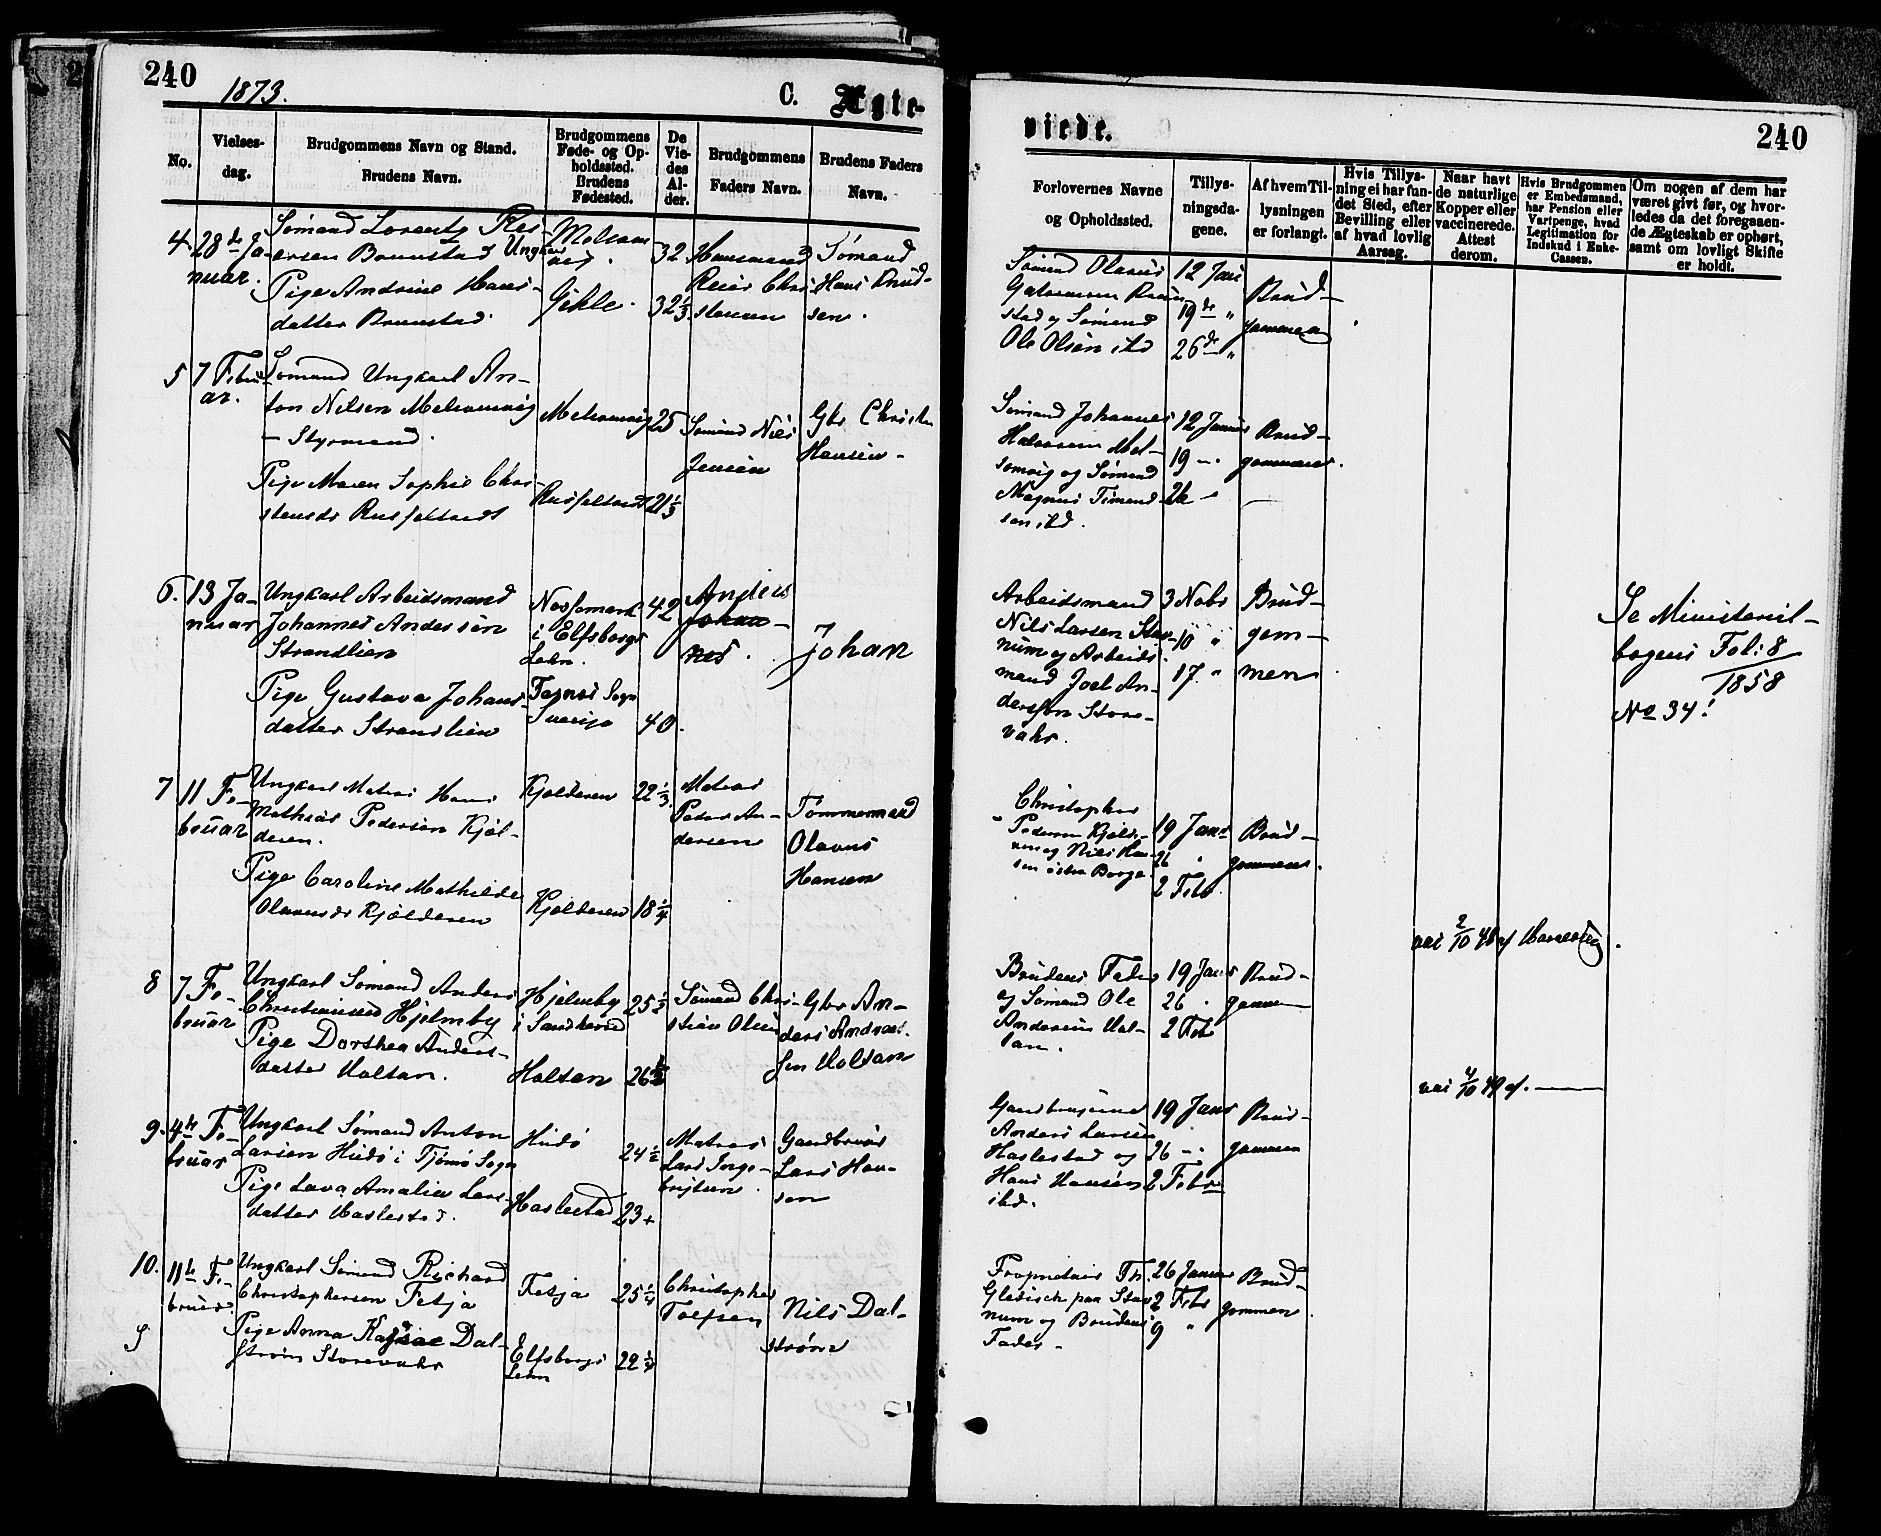 240
1873.
C. Ægte-
No.
Vielses-
dag.
Brudgommens Navn og Stand.
Brudens Navn.
Brudgommens
Føde- og Op-
holdssted.
Brudens
Fødested.
De
Vie-
des
Al-
der.
Brudgommens
Faders Navn.
Brudens Faders
Navn.
4 28de Ja-
nuar.
Sømand Lorents
ersen Brunstad Ungkarl
Pige Andrine Hans-
datter Brunstad.
Gikle.
32
32 1/3
Huusmand
Reier Chri-
stensen
Sømand
Hans Knud-
sen.
5 7 Febru-
ar.
Sømand Ungkarl An-
ton Nilsen Melsomvig
- Styrmand.
Pige Maren Sophie Chri-
stensdr Rusfeltadt
Melsomvig
Rusfeltadt
25
21 1/3
Sømand Nils
Jensen
Gbr Christen
Hansen -
6. 13 Ja-
nuar
Ungkarl Arbeidsmand
Johannes Andersen
Strandlien
Pige Gustava Johans-
datter Strandlien
i Elfsborgs
Lehn.
Sogn
Sverige
42
40.
Anders
Johan-
nes
Johan
7 11 Fe-
bruar
Ungkarl Matros Hans
Mathias Pedersen Kjøl-
deren.
Pige Caroline Mathilde
Olavusdr Kjølderen
Kjølderen
Kjølderen
22 1/3
18 1/4
Matros
Peder An-
dersen
Tømmermand
Olavus
Hansen
8 7 Fe-
bruar
Ungkarl Sømand Anders
Christiansen Hjelmby
Pige Dorthea Anders-
datter Holtan.
Hjelmby
i Sandeherred
Holtan
25 1/2
26
Sømand Chri-
stian Olsen
Gbr An-
ders Andreas-
sen Holtan
9. 4de Fe-
bruar
Ungkarl Sømand Anton
Larsen Hudø i Tjømø Sogn
Pige Lava Amalie Lars-
datter Haslestad.
Hudø
Haslestad
24 1/2
23
Matros
Lars Inge-
brigtsen.
Gaardbruger
Lars Han-
sen
10. 11te Fe-
bruar
Ungkarl Sømand Richard
Christophersen Fetja
Pige Anna Dal-
strøm Storevahr
Fetja
Elfsborgs
Lehn
25 1/4
22 1/4
Christopher
Tolfsen
Nils Dal-
strøm
viede.
240
Forlovernes Navne
og Opholdssted.
Tillys-
ningsda-
gene.
Af hvem Til-
lysningen
er forlangt.
Hvis Tillys-
ning ei har fun-
det Sted, efter
Bevilling eller
af hvad lovlig
Aarsag.
Naar havt
de naturlige
Kopper eller
vaccinerede.
Attest
derom.
Hvis Brudgommen
er Embedsmand,
har Pension eller
Vartpenge, hvad
Legitimation for
Indskud i Enke-
Cassen.
Om nogen af dem har
været givt før, og hvor-
ledes da det foregaaen-
de Ægteskab er ophørt,
samt om lovligt Skifte
er holdt.
Sømand Olavus
stad og Sømand
Ole Olsen ibd
12 Jan
19de "
26de "
Brud-
gommen
Sømand Johannes
Halvorsen Mel-
somvig og Sømand
Magnus
sen ibd.
12 Januar
19 -
26 -
Brud-
gommen.
Arbeidsmand
Nils Larsen Stav-
num og Arbeids-
mand Joel An-
dersson Store-
vahr.
3 Nobr
10 "
17. "
Brud-
gom-
men
Se Ministerial-
bogens Fol: 8
1858
No 34!
Christopher
Pedersen Kjølde-
ren og Nils Han-
sen østre Borge
19 Janr
26 "
2 Feb.
Brud-
gommen.
Brudens Fader
og Sømand Ole
Andersen Hol-
tan.
19 Janr
26 "
2 Feb
Brud-
gommen
vac 2/10 48 af
Gaardbrugerne
Anders Larsen
Haslestad og
Hans Hansen
ibd.
19 Janr
26 -
2 Febr
Brud-
gommen
vac 4/10 49 af.
Proprietair Th.
paa Stav-
num og Brudens
Fader -
26 Januar
2 Febr
9 "
Brud-
gommen.